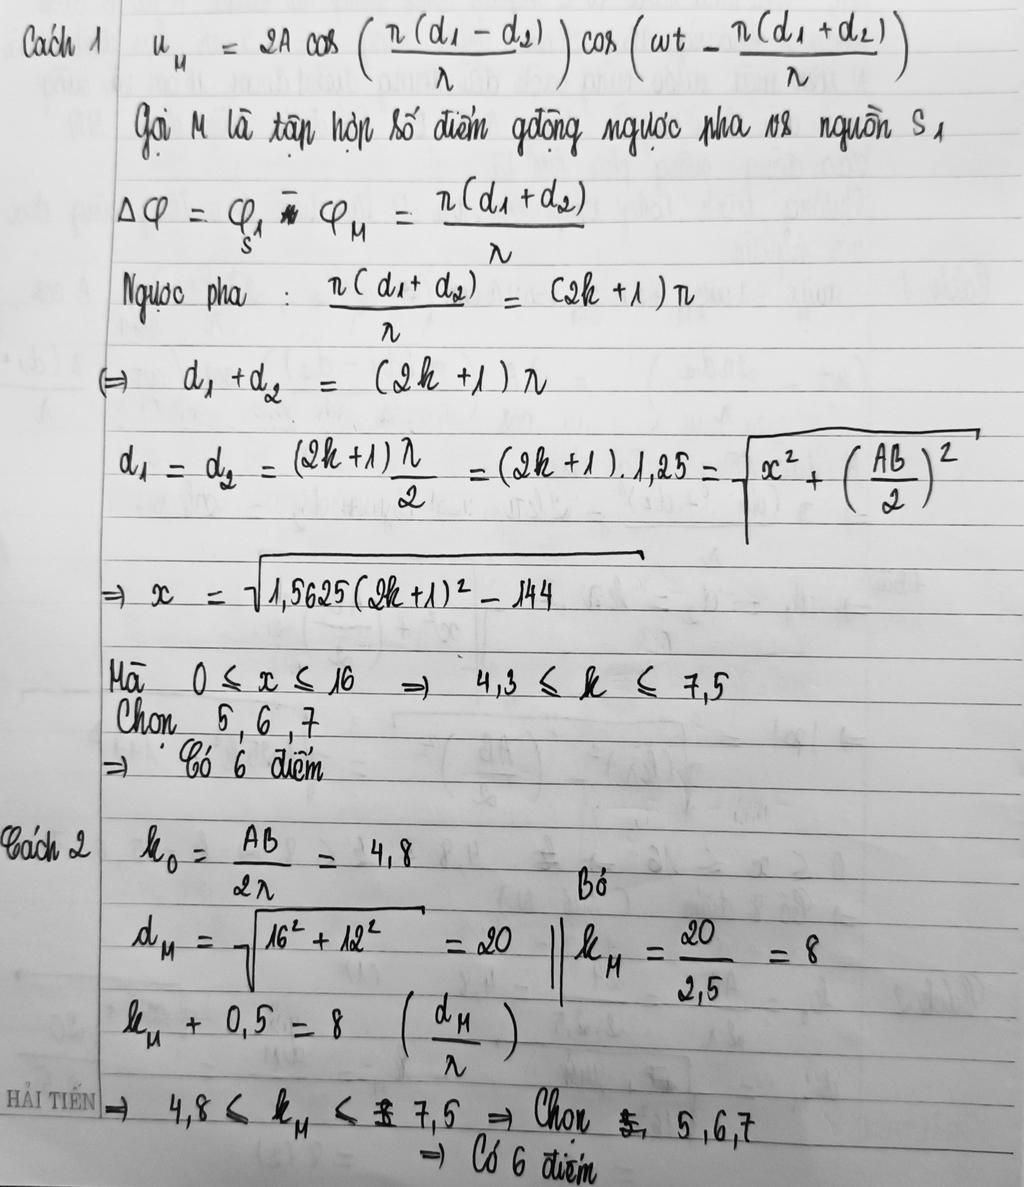 Cách 1 u_M = 2A cos (π(d₁ - d₂)/λ) cos (ωt - π(d₁ + d₂)/λ)
Gọi M là tập hợp số điểm gđộng ngược pha vs nguồn S₁
Δφ = φ_S1 - φ_M = π(d₁ + d₂)/λ
Ngược pha : π(d₁ + d₂)/λ = (2k + 1)π
⇔ d₁ + d₂ = (2k + 1)λ
d₁ = d₂ = (2k + 1)λ/2 = (2k + 1).1,25 = √(x² + (AB/2)²)
⇒ x = √(1,5625(2k+1)² - 144)
Mà 0 ≤ x ≤ 16 ⇒ 4,3 ≤ k ≤ 7,5
Chọn 5, 6, 7
⇒ Có 6 điểm
Cách 2 k₀ = AB/2λ = 4,8
Bó
d_M = √(16² + 12²) = 20 || k_M = 20/2,5 = 8
k_M + 0,5 = 8 (d_M/λ)
HẢI TIẾN ⇒ 4,8 ≤ k_M ≤ 7,5 ⇒ Chọn 5,6,7
⇒ Có 6 điểm